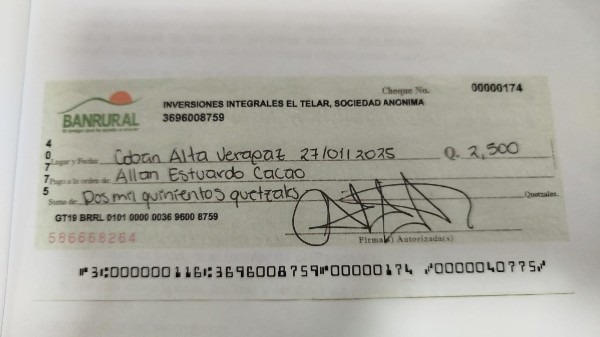 Cheque No. 00000174
BANRURAL
INVERSIONES INTEGRALES EL TELAR, SOCIEDAD ANONIMA
3696008759
40775
Lugar y Fecha: Coban Alta Verapaz 27/01/2025 Q. 2,500
Pago a la orden de: Allan Estuardo Cacao
Suma de: Dos mil quinientos quetzales Quetzales.
GT19 BRRL 0101 0000 0036 9600 8759
586668264
Firma(s) Autorizada(s)
⑈3⑆000000116⑆3696008759⑈00000174 ⑇0000040775⑇